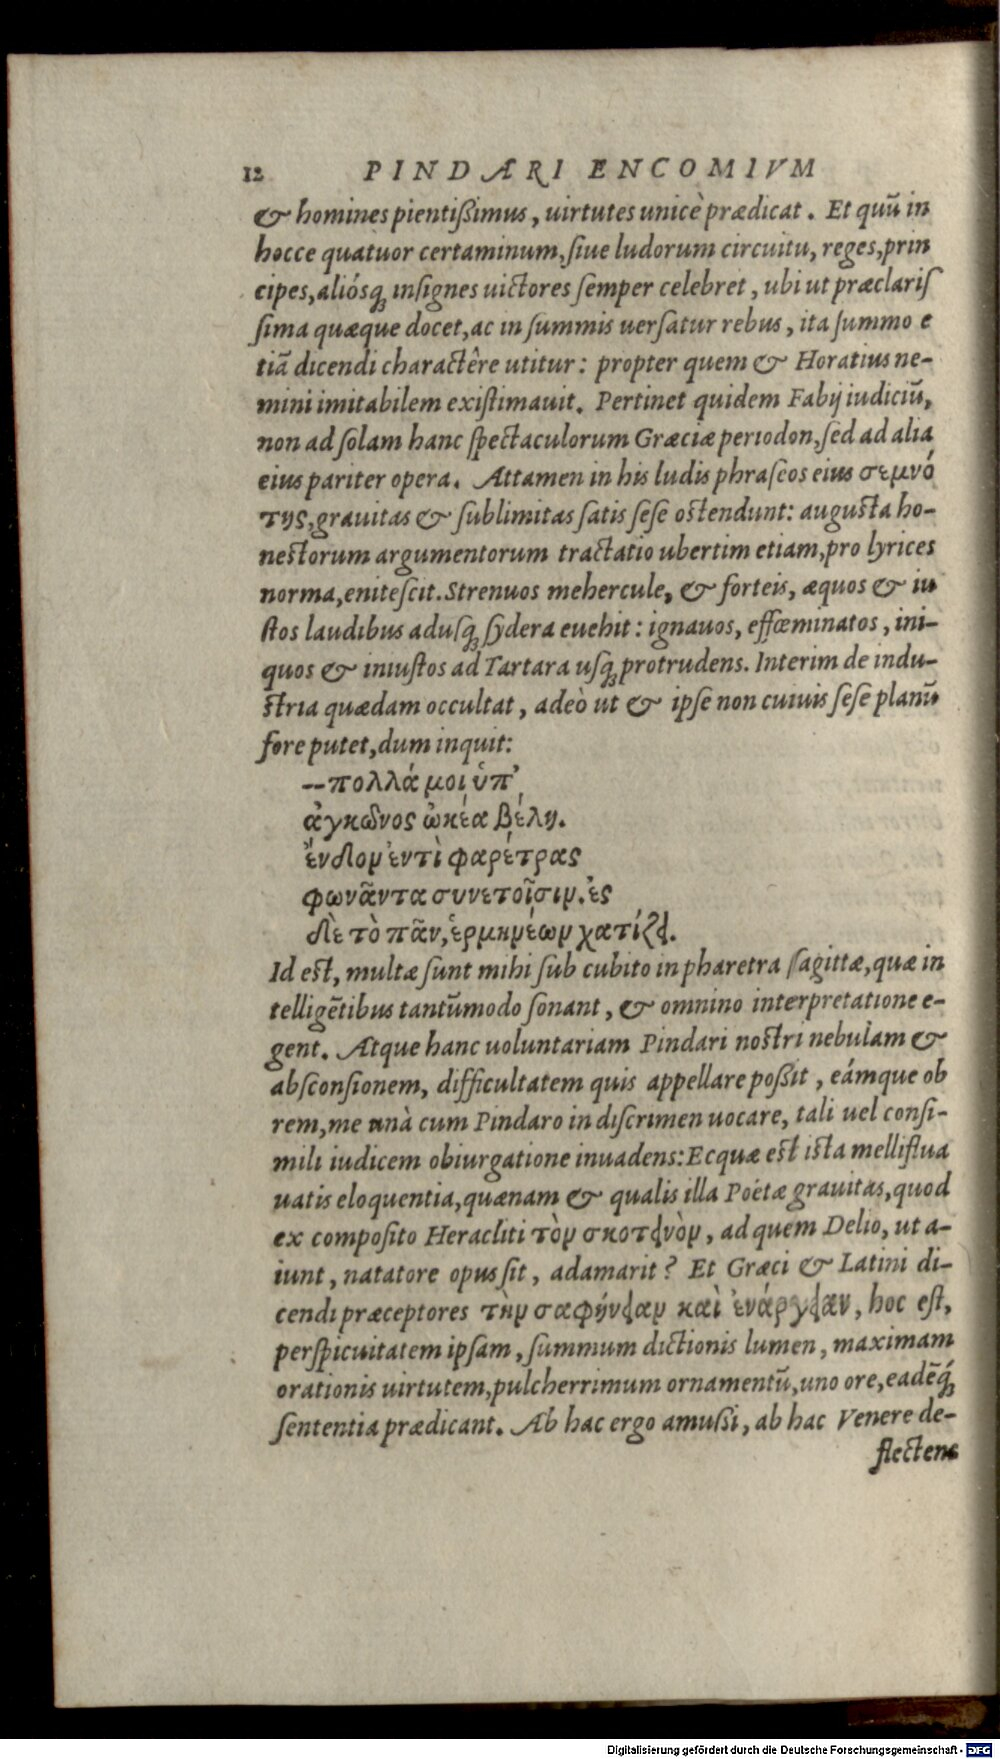 12 PINDARI ENCOMIVM
& homines pientißimus, uirtutes unicè prædicat. Et quũ in
hocce quatuor certaminum, ſiue ludorum circuitu, reges, prin
cipes, aliósq; inſignes uictores ſemper celebret, ubi ut præclariſ
ſima quæque docet, ac in ſummis uerſatur rebus, ita ſummo e
tiã dicendi charactêre utitur: propter quem & Horatius ne-
mini imitabilem exiſtimauit. Pertinet quidem Fabij iudiciũ,
non ad ſolam hanc ſpectaculorum Græciæ periodon, ſed ad alia
eius pariter opera. Attamen in his ludis phraſeos eius σεμνό
της, grauitas & ſublimitas ſatis ſeſe oſtendunt: auguſta ho-
neſtorum argumentorum tractatio ubertim etiam, pro lyrices
norma, eniteſcit. Strenuos mehercule, & forteis, æquos & iu
ſtos laudibus aduſq; ſydera euehit: ignauos, effœminatos, ini-
quos & iniuſtos ad Tartara uſq; protrudens. Interim de indu-
ſtria quædam occultat, adeò ut & ipſe non cuiuis ſeſe planũ
fore putet, dum inquit:
--πολλά μοι ὑπ’
ἀγκῶνος ὠκέα βέλη.
ἔνδον ἐντὶ φαρέτρας
φωνᾶντα συνετοῖσιν. ἐς
δὲ τὸ πᾶν, ἑρμηνέων χατίζει.
Id eſt, multæ ſunt mihi ſub cubito in pharetra ſagittæ, quæ in
telligẽtibus tantũmodo ſonant, & omnino interpretatione e-
gent. Atque hanc uoluntariam Pindari noſtri nebulam &
abſconſionem, difficultatem quis appellare poßit, eámque ob
rem, me unà cum Pindaro in diſcrimen uocare, tali uel conſi-
mili iudicem obiurgatione inuadens: Ecquæ eſt iſta melliflua
uatis eloquentia, quænam & qualis illa Poetæ grauitas, quod
ex compoſito Heracliti τὸν σκοτεινὸν, ad quem Delio, ut a-
iunt, natatore opus ſit, adamarit? Et Græci & Latini di-
cendi præceptores τὴν σαφήνειαν καὶ ἐνάργειαν, hoc eſt,
perſpicuitatem ipſam, ſummum dictionis lumen, maximam
orationis uirtutem, pulcherrimum ornamentũ, uno ore, eadẽq́;
ſententia prædicant. Ab hac ergo amußi, ab hac Venere de-
flectens
Digitalisierung gefördert durch die Deutsche Forschungsgemeinschaft - DFG